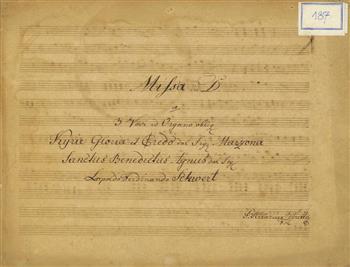 187
Missa D
a
3 Voci ed Organo oblig
Kyrie Gloria et Credo del Sigr Mazzona
Sanctus Benedictus Agnus del Sigr
Leopoldo Ferdinando Schwert